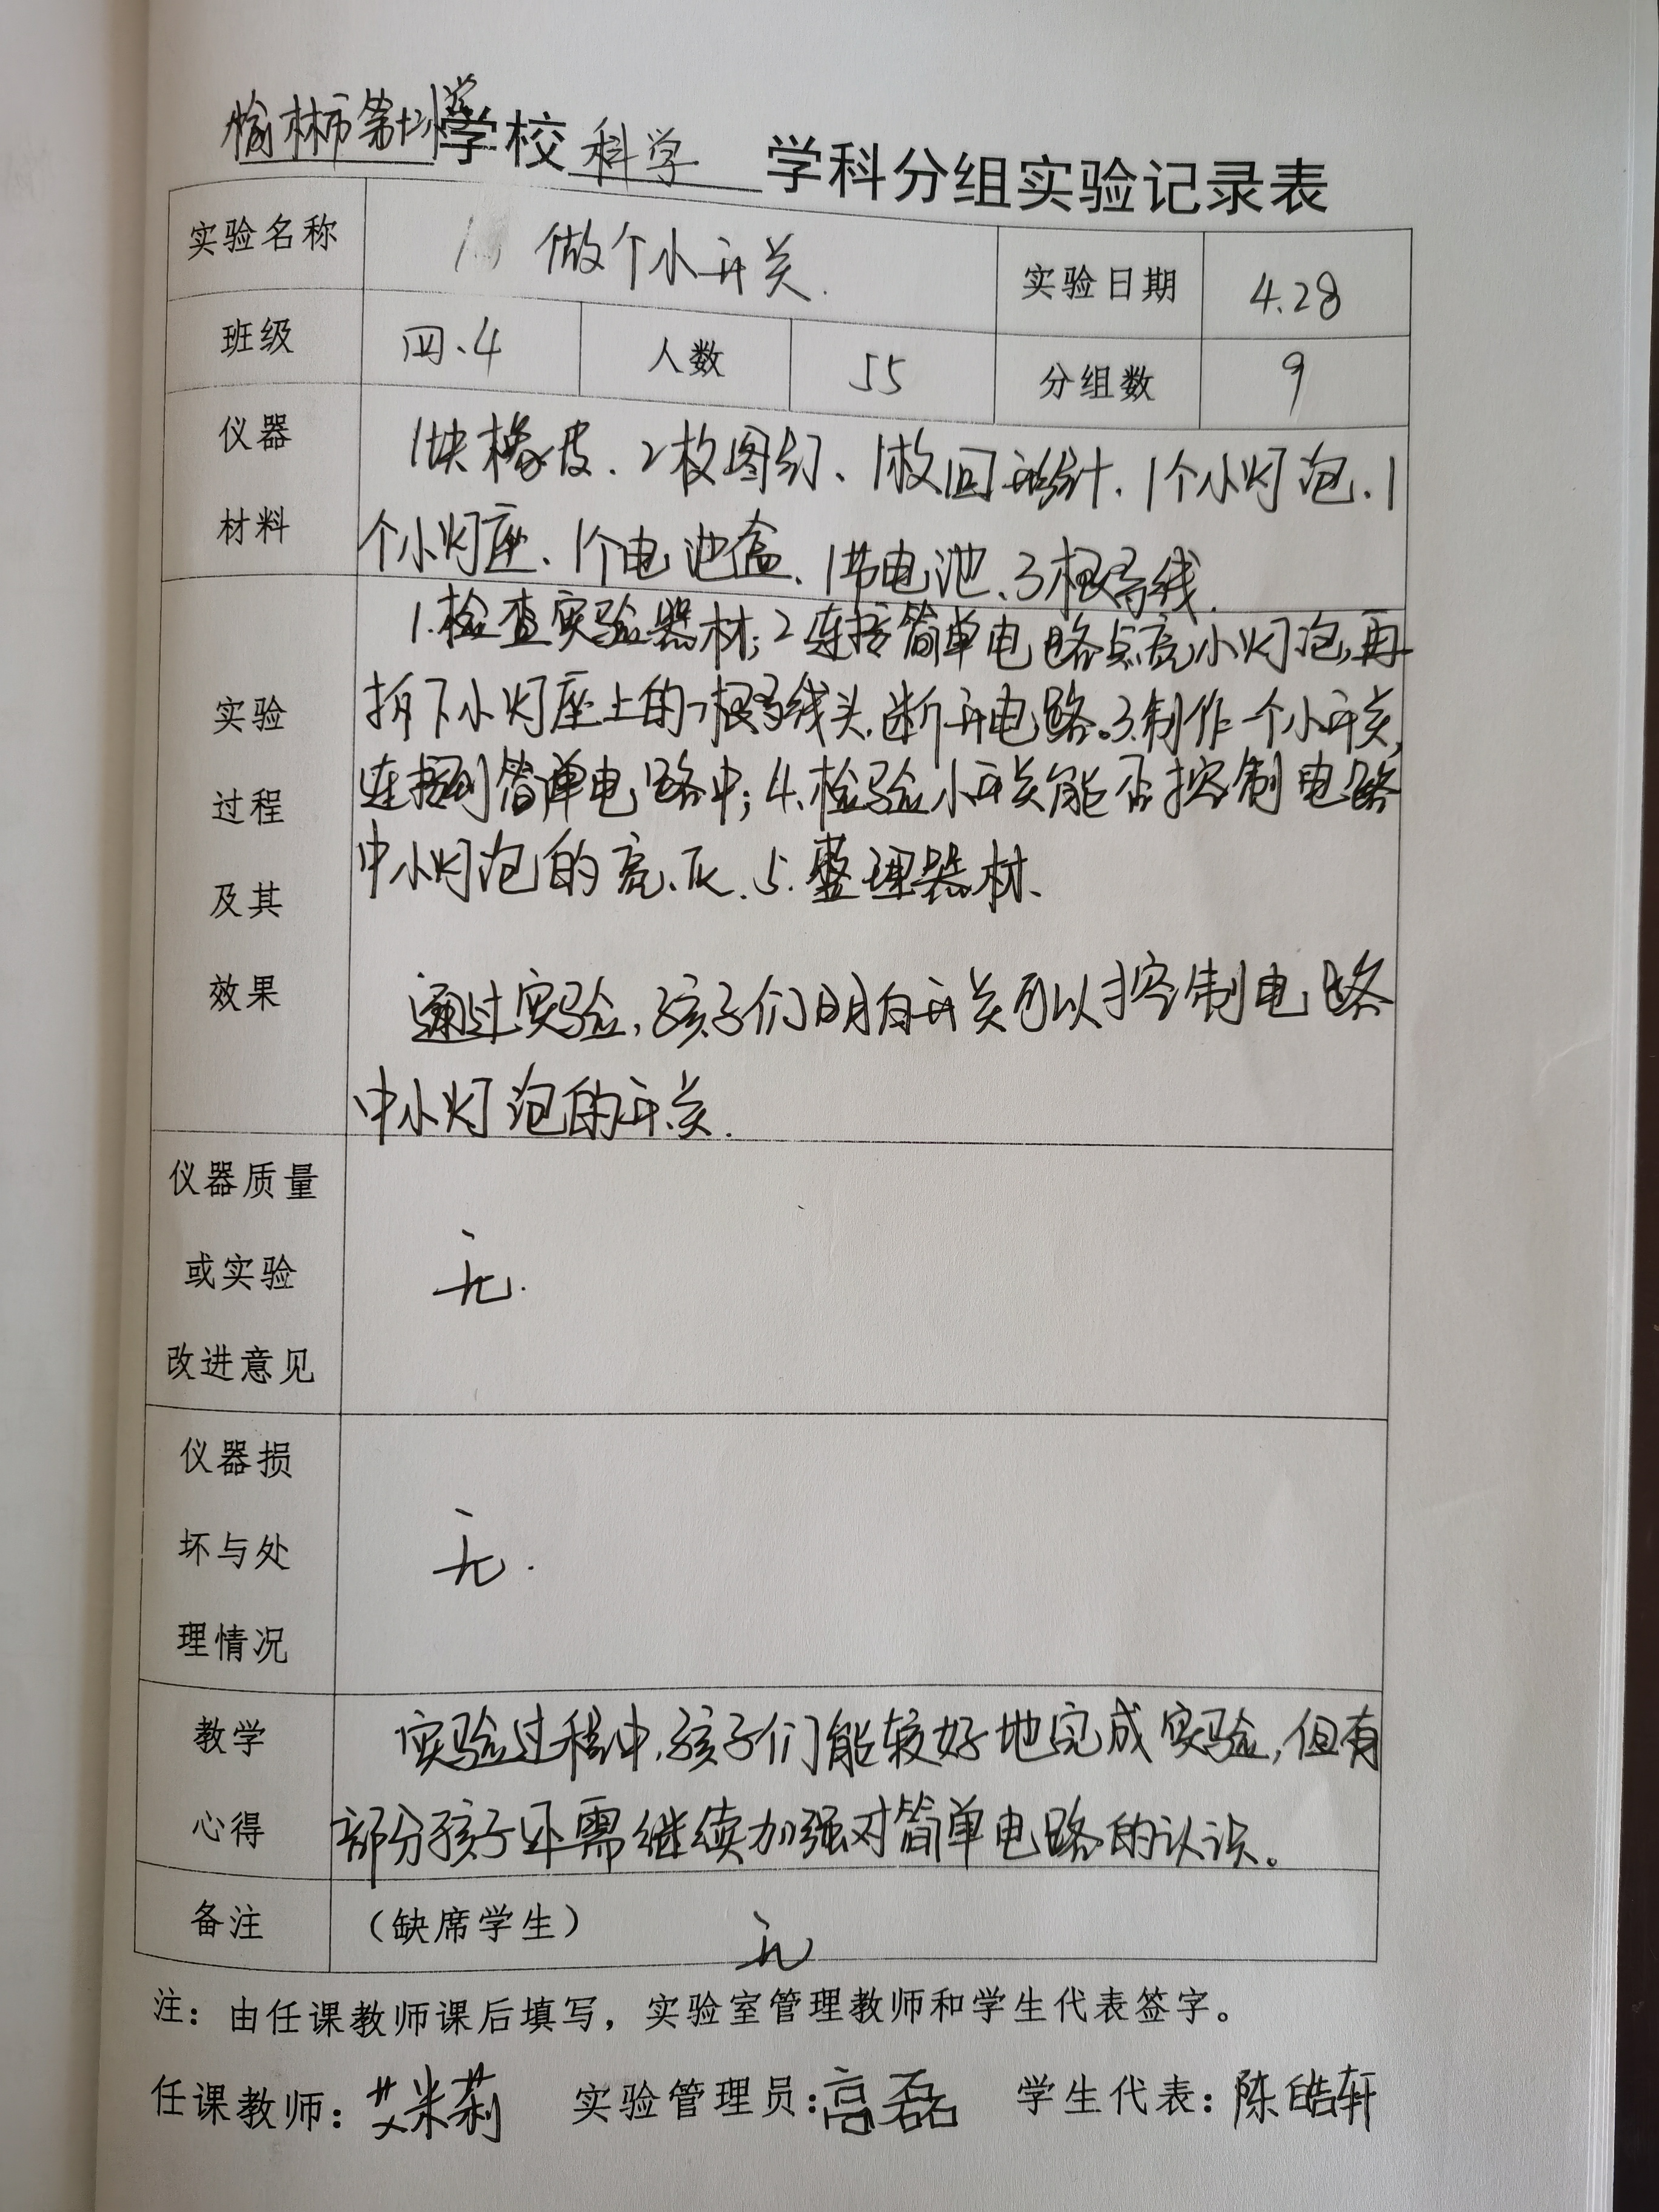 榆林市第十二小学学校 科学 学科分组实验记录表
实验名称 做个小开关. 实验日期 4.28
班级 四.4 人数 55 分组数 9
仪器材料 1块橡皮、2枚图钉、1枚回形针、1个小灯泡、1
个小灯座、1个电池盒、1节电池、3根导线.
实验过程及其效果 1.检查实验器材;2连接简单电路点亮小灯泡,再
拆下小灯座上的一根导线头,断开电路。3.制作一个小开关,
连接到简单电路中;4.检验小开关能否控制电路
中小灯泡的亮、灭.5.整理器材、
通过实验,孩子们明白开关可以控制电路
中小灯泡的开关.
仪器质量或实验改进意见 无.
仪器损坏与处理情况 无.
教学心得 实验过程中,孩子们能较好地完成实验,但有
部分孩子还需继续加强对简单电路的认识。
备注 (缺席学生) 无
注:由任课教师课后填写,实验室管理教师和学生代表签字。
任课教师:艾米莉 实验管理员:高磊 学生代表:陈皓轩